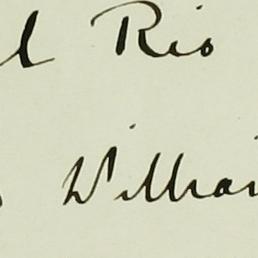 l Rio
Willia